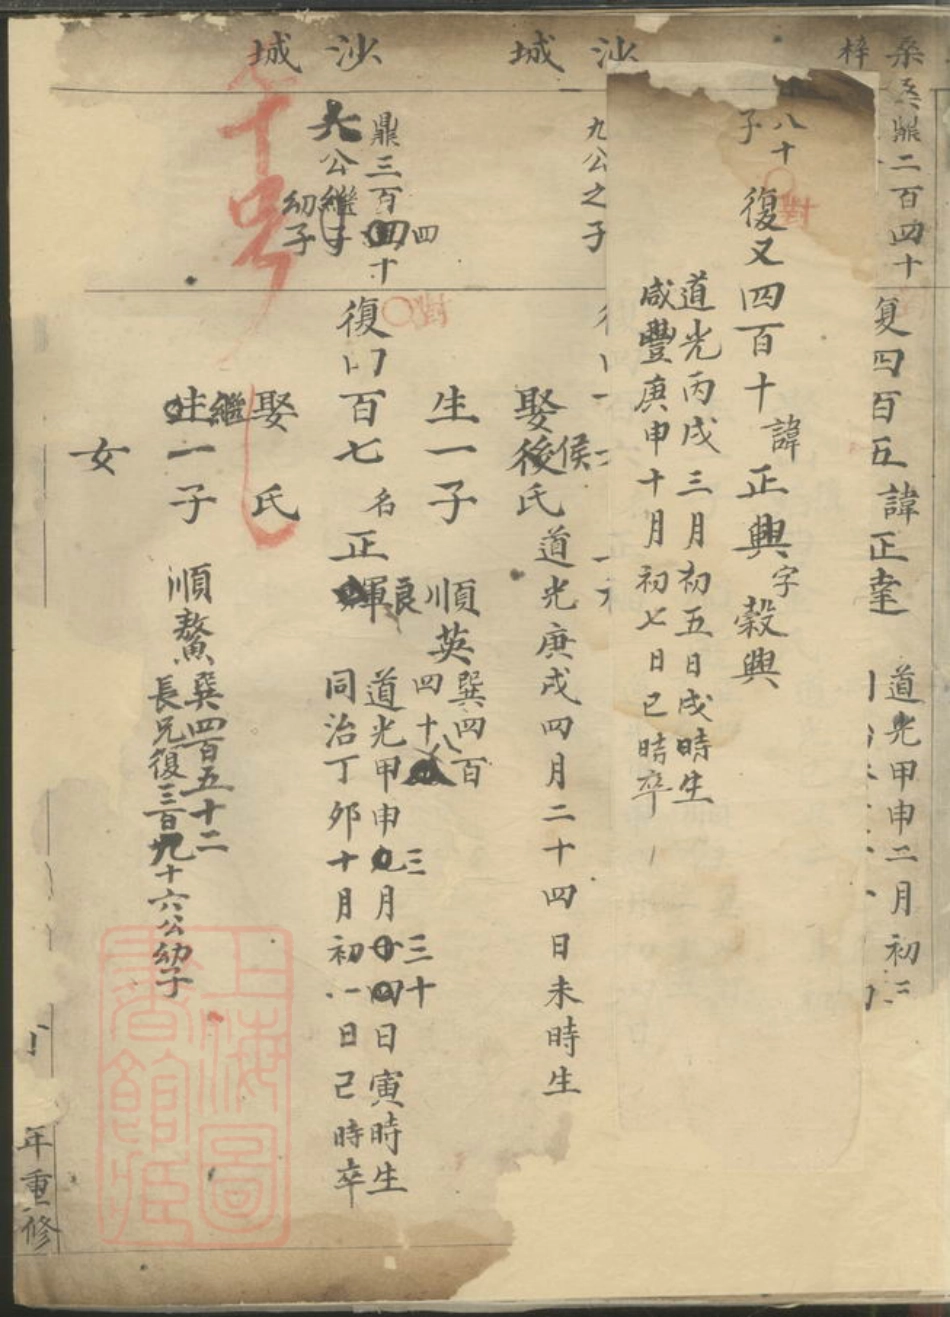 桑梓
鼎二百四十
復四百五 諱正達
道光甲申二月初二
八十
子
復又四百十 諱正興 字穀興
道光丙戌三月初五日戌時生
咸豐庚申十月初七日巳時卒
沙城
九公之子
娶侯氏
道光庚戌四月二十四日未時生
生一子 順英
巽四百
四十八
沙城
鼎三百四十四
六公繼子
幼子
復四百七 名正良
道光甲申三月三十日寅時生
同治丁卯十月初一日己時卒
娶 氏
繼一子 順鰲
巽四百五十二
長兄復三百九十六公幼子
女
年重修
上海圖書館藏